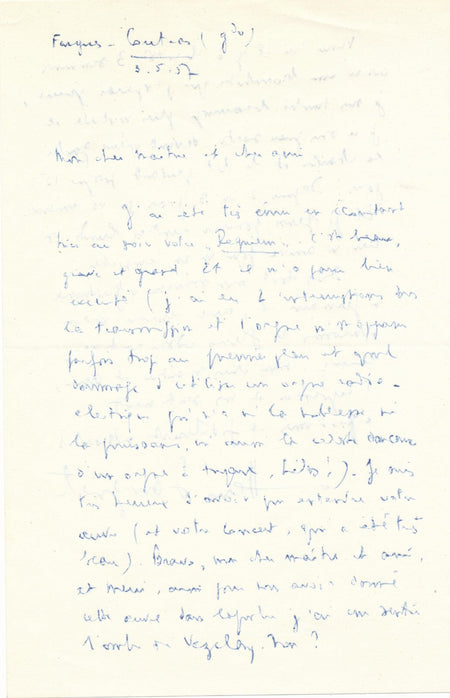 Fargues - Coutras (gde)
3.5.57
Mon cher maître et cher ami
J'ai été très ému en écoutant
hier au soir votre "Requiem". C'est beau,
grave et grand. Et il m'a paru bien
exécuté (j'ai eu 2 interruptions dans
la transmission et l'orgue m'apparu
parfois trop au premier plan et quel
dommage d'utiliser un orgue radio-
électrique qui n'a ni la noblesse, ni
la puissance, ni aussi la céleste douceur
d'un orgue à tuyaux, hélas!). Je suis
très heureux d'avoir pu entendre votre
œuvre (et votre concert, qui a été très
beau). Bravo, mon cher maître et ami,
et merci, aussi pour nous avoir donné
cette œuvre dans laquelle j'ai cru sentir
l'ombre de Vezelay. Non ?